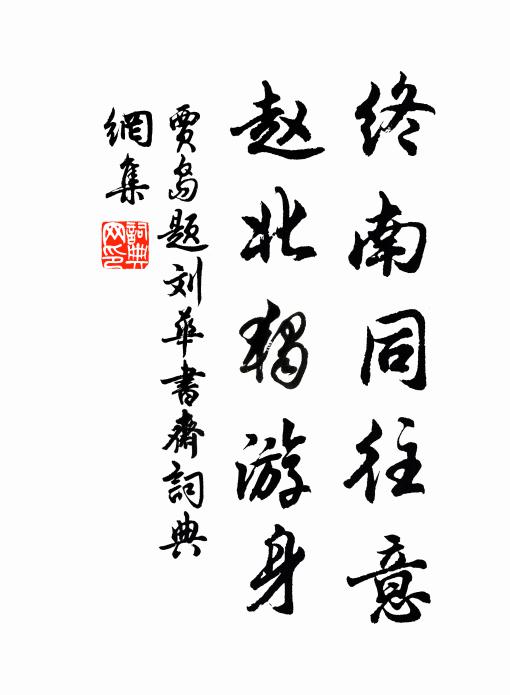 终南同往意
赵北独游身
贾岛题刘华书斋词典
网集
词典网印